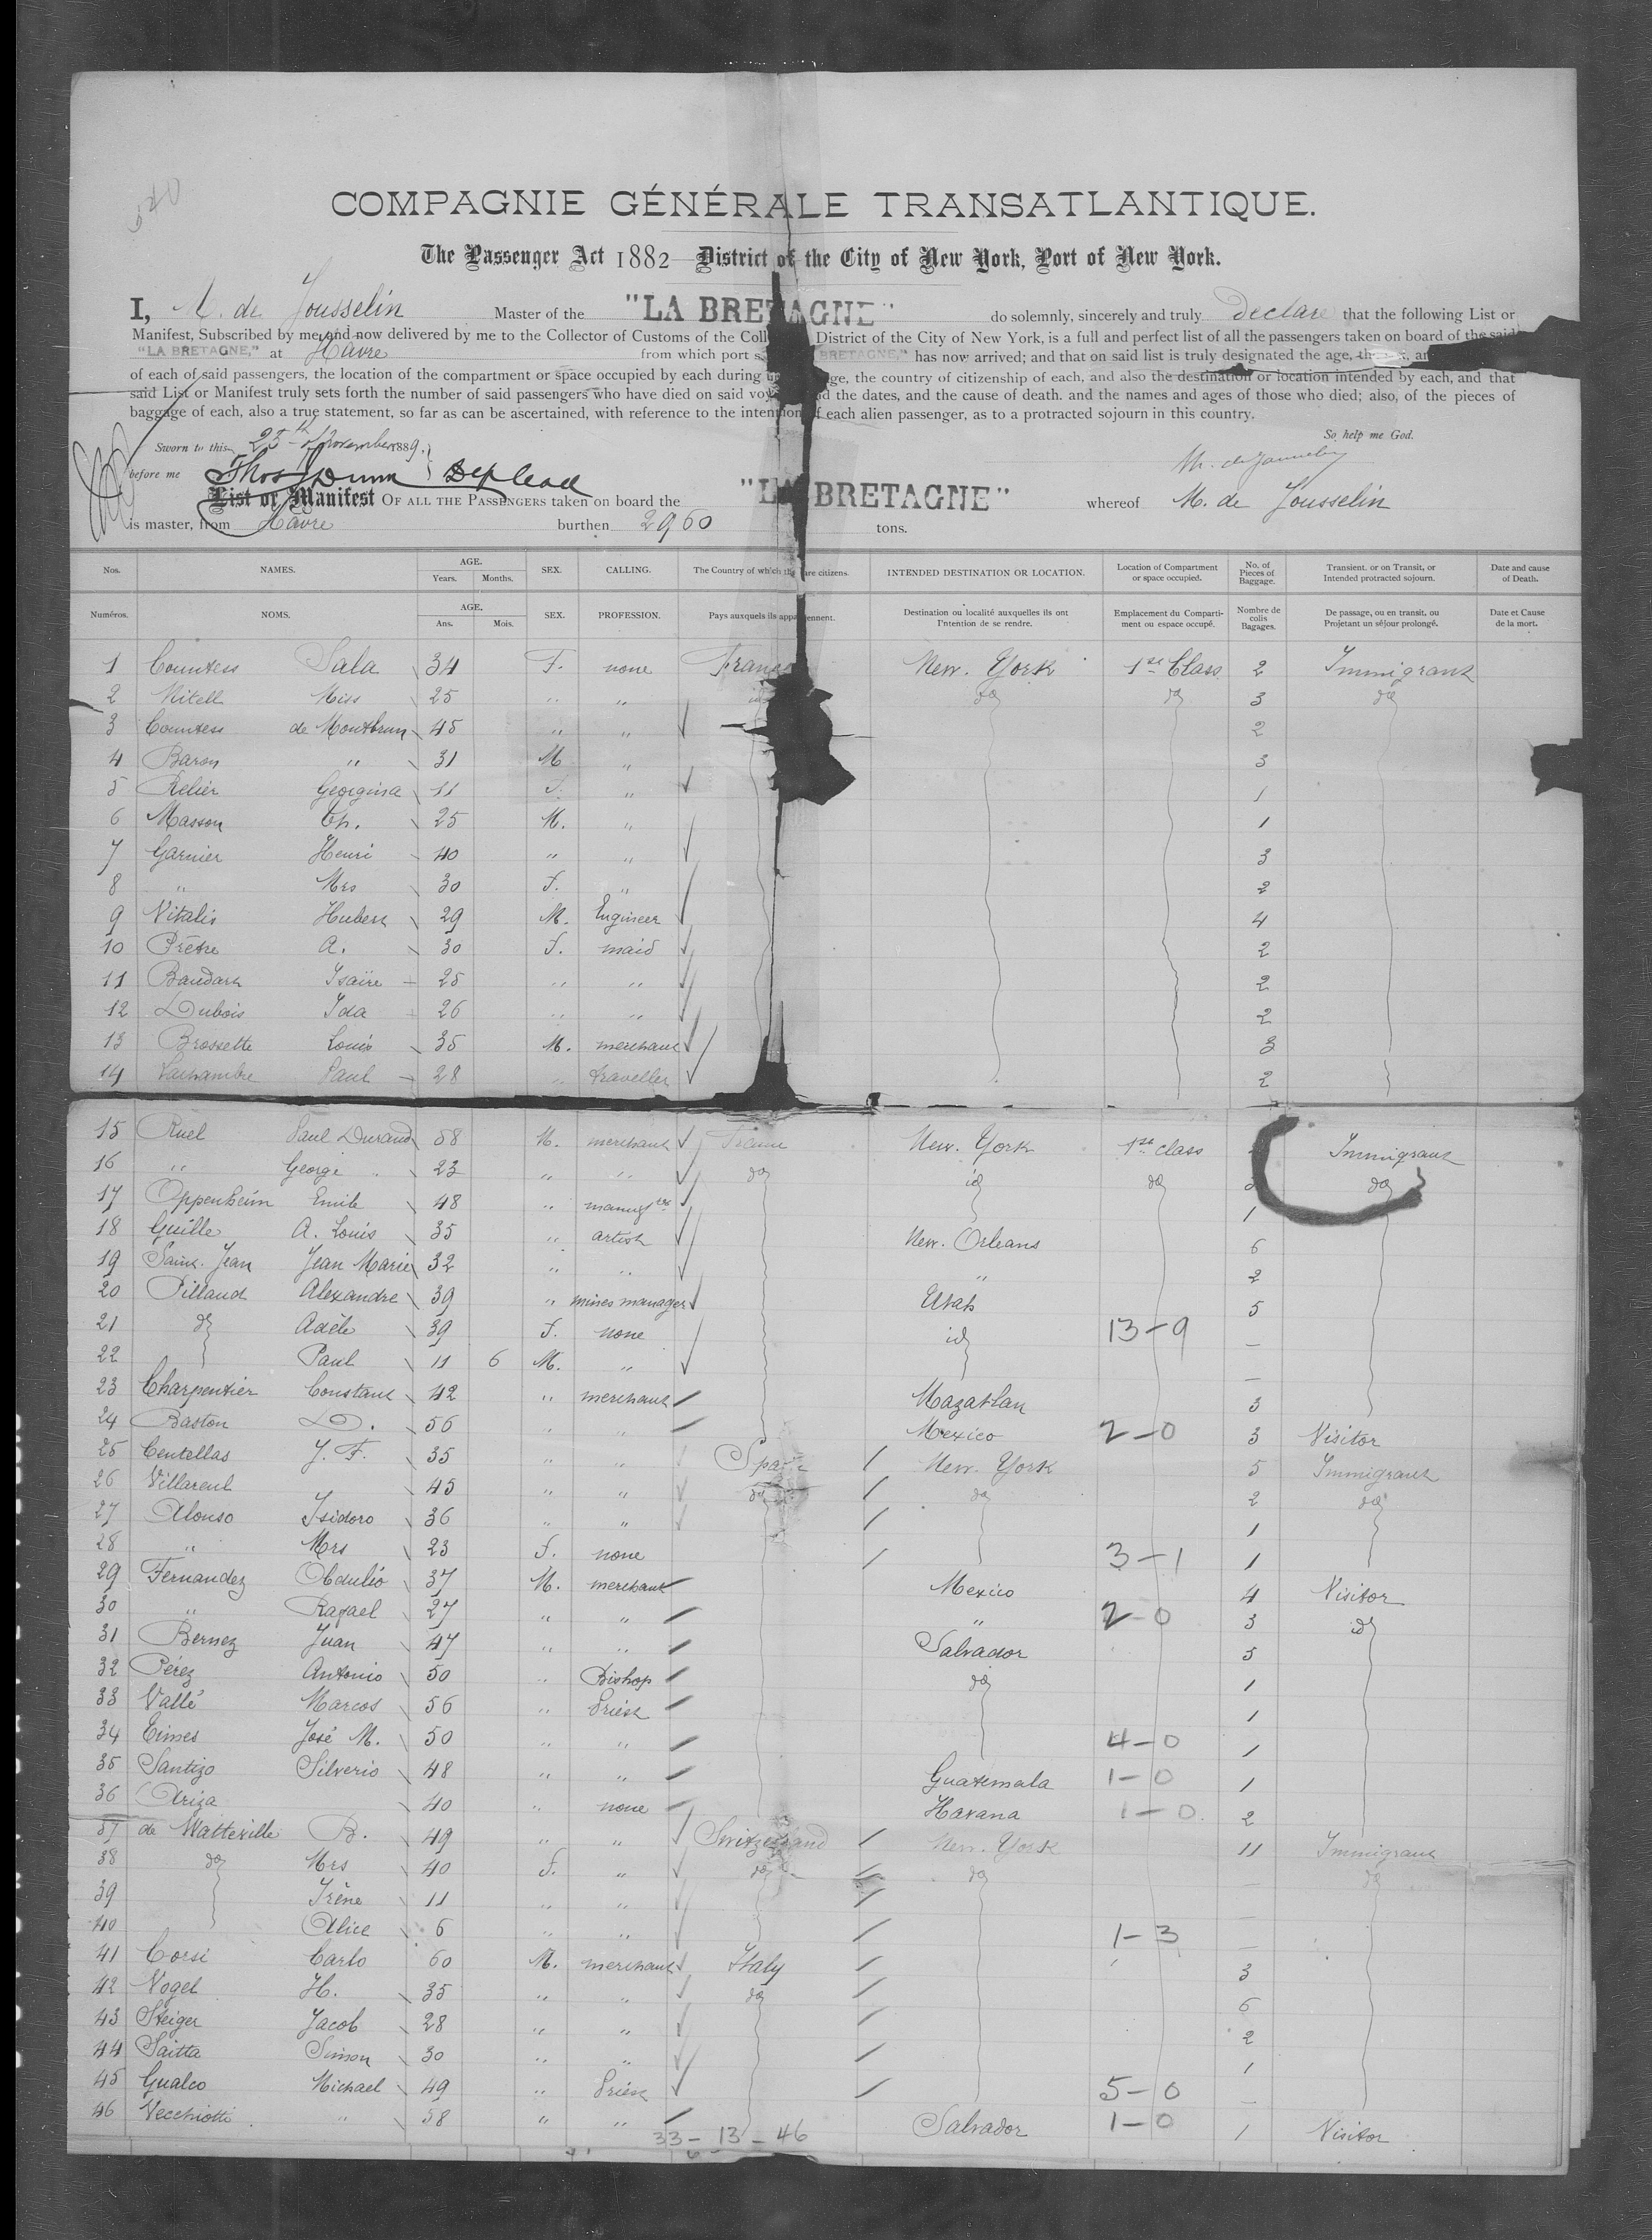 540
COMPAGNIE GÉNÉRALE TRANSATLANTIQUE.
The Passenger Act 1882 District of the City of New York, Port of New York.
I, M. de Jousselin Master of the "LA BRETAGNE" do solemnly, sincerely and truly declare that the following List or
Manifest, Subscribed by me and now delivered by me to the Collector of Customs of the District of the City of New York, is a full and perfect list of all the passengers taken on board of the said
"LA BRETAGNE," at Havre from which port BRETAGNE," has now arrived; and that on said list is truly designated the age,
of each of said passengers, the location of the compartment or space occupied by each during the country of citizenship of each, and also the destination or location intended by each, and that
said List or Manifest truly sets forth the number of said passengers who have died on said the dates, and the cause of death. and the names and ages of those who died; also, of the pieces of
baggage of each, also a true statement, so far as can be ascertained, with reference to the intention of each alien passenger, as to a protracted sojourn in this country.
So help me God.
Sworn to this 25th of November 1889,
before me Thos Dunn
List or Manifest OF ALL THE PASSENGERS taken on board the "LA BRETAGNE" whereof M. de Jousselin
is master, from Havre burthen 2960 tons.
Nos. NAMES. AGE. Years. Months. SEX. CALLING. The Country of which they are citizens. INTENDED DESTINATION OR LOCATION. Location of Compartment or space occupied. No. of Pieces of Baggage. Transient. or on Transit, or Intended protracted sojourn. Date and cause of Death.
Numéros. NOMS. AGE. Ans. Mois. SEX. PROFESSION. Pays auxquels ils appartiennent. Destination ou localité auxquelles ils ont l'intention de se rendre. Emplacement du Compartiment ou espace occupé. Nombre de colis Bagages. De passage, ou en transit, ou Projetant un séjour prolongé. Date et Cause de la mort.
1 Countess Sala 34 F. none France New. York 1st Class 2 Immigrant
2 Nitell Miss 25 " " id do do 3 do
3 Countess de Montbrun 45 " " 2
4 Baron " 31 M " 3
5 Relier Georgina 11 F. " 1
6 Masson Ch. 25 M. " 1
7 Garnier Henri 40 " " 3
8 " Mrs 30 F. " 2
9 Vitalis Hubert 29 M. Engineer 4
10 Prêtre A. 30 F. maid 2
11 Baudart Isaïre 25 " " 2
12 Dubois Ida 26 " " 2
13 Brossette Louis 35 M. merchant 3
14 Lachambre Paul 28 " traveller 2
15 Ruel Paul Durand 58 M. merchant France New. York 1st class Immigrant
16 " George " 23 " " do id do do
17 Oppenheim Emile 48 " 1
18 Guille A. Louis 35 " artist New. Orleans 6
19 Saint. Jean Jean Marie 32 " " " 2
20 Pillaud Alexandre 39 " mines manager Utah 5
21 do Adèle 39 F. none id 13-9 —
22 Paul 11 6 M. " —
23 Charpentier Constant 42 " merchant Mazatlan 3
24 Baston D. 56 " " Mexico 2-0 3 Visitor
25 Centellas J. F. 35 " " Spain New. York 5 Immigrant
26 Villareul 45 " " do do 2 do
27 Alonso Isidoro 36 " " 1
28 " Mrs 23 F. none 3-1 1
29 Fernandez Obdulio 37 M. merchant Mexico 4 Visitor
30 " Rafael 27 " " " 2-0 3 do
31 Bernez Juan 47 " " Salvador 5
32 Pérez Antonio 50 " Bishop do 1
33 Vallé Marcos 56 " Priest 1
34 Eimes José M. 50 " " 4-0 1
35 Santizo Silverio 48 " " Guatemala 1-0 1
36 Ariza 40 " none Havana 1-0 2
37 de Watteville B. 49 " " Switzerland New. York 11 Immigrant
38 do Mrs 40 F. " do do — do
39 Irène 11 " " —
40 Alice 6 " " 1-3 —
41 Corsi Carlo 60 M. merchant Italy 3
42 Vogel H. 35 " " do 6
43 Steiger Jacob 28 " " 2
44 Saitta Simon 30 " " 1
45 Gualco Michael 49 " Priest 5-0 —
46 Vecchiotti " 58 " " Salvador 1-0 1 Visitor
33-13-46